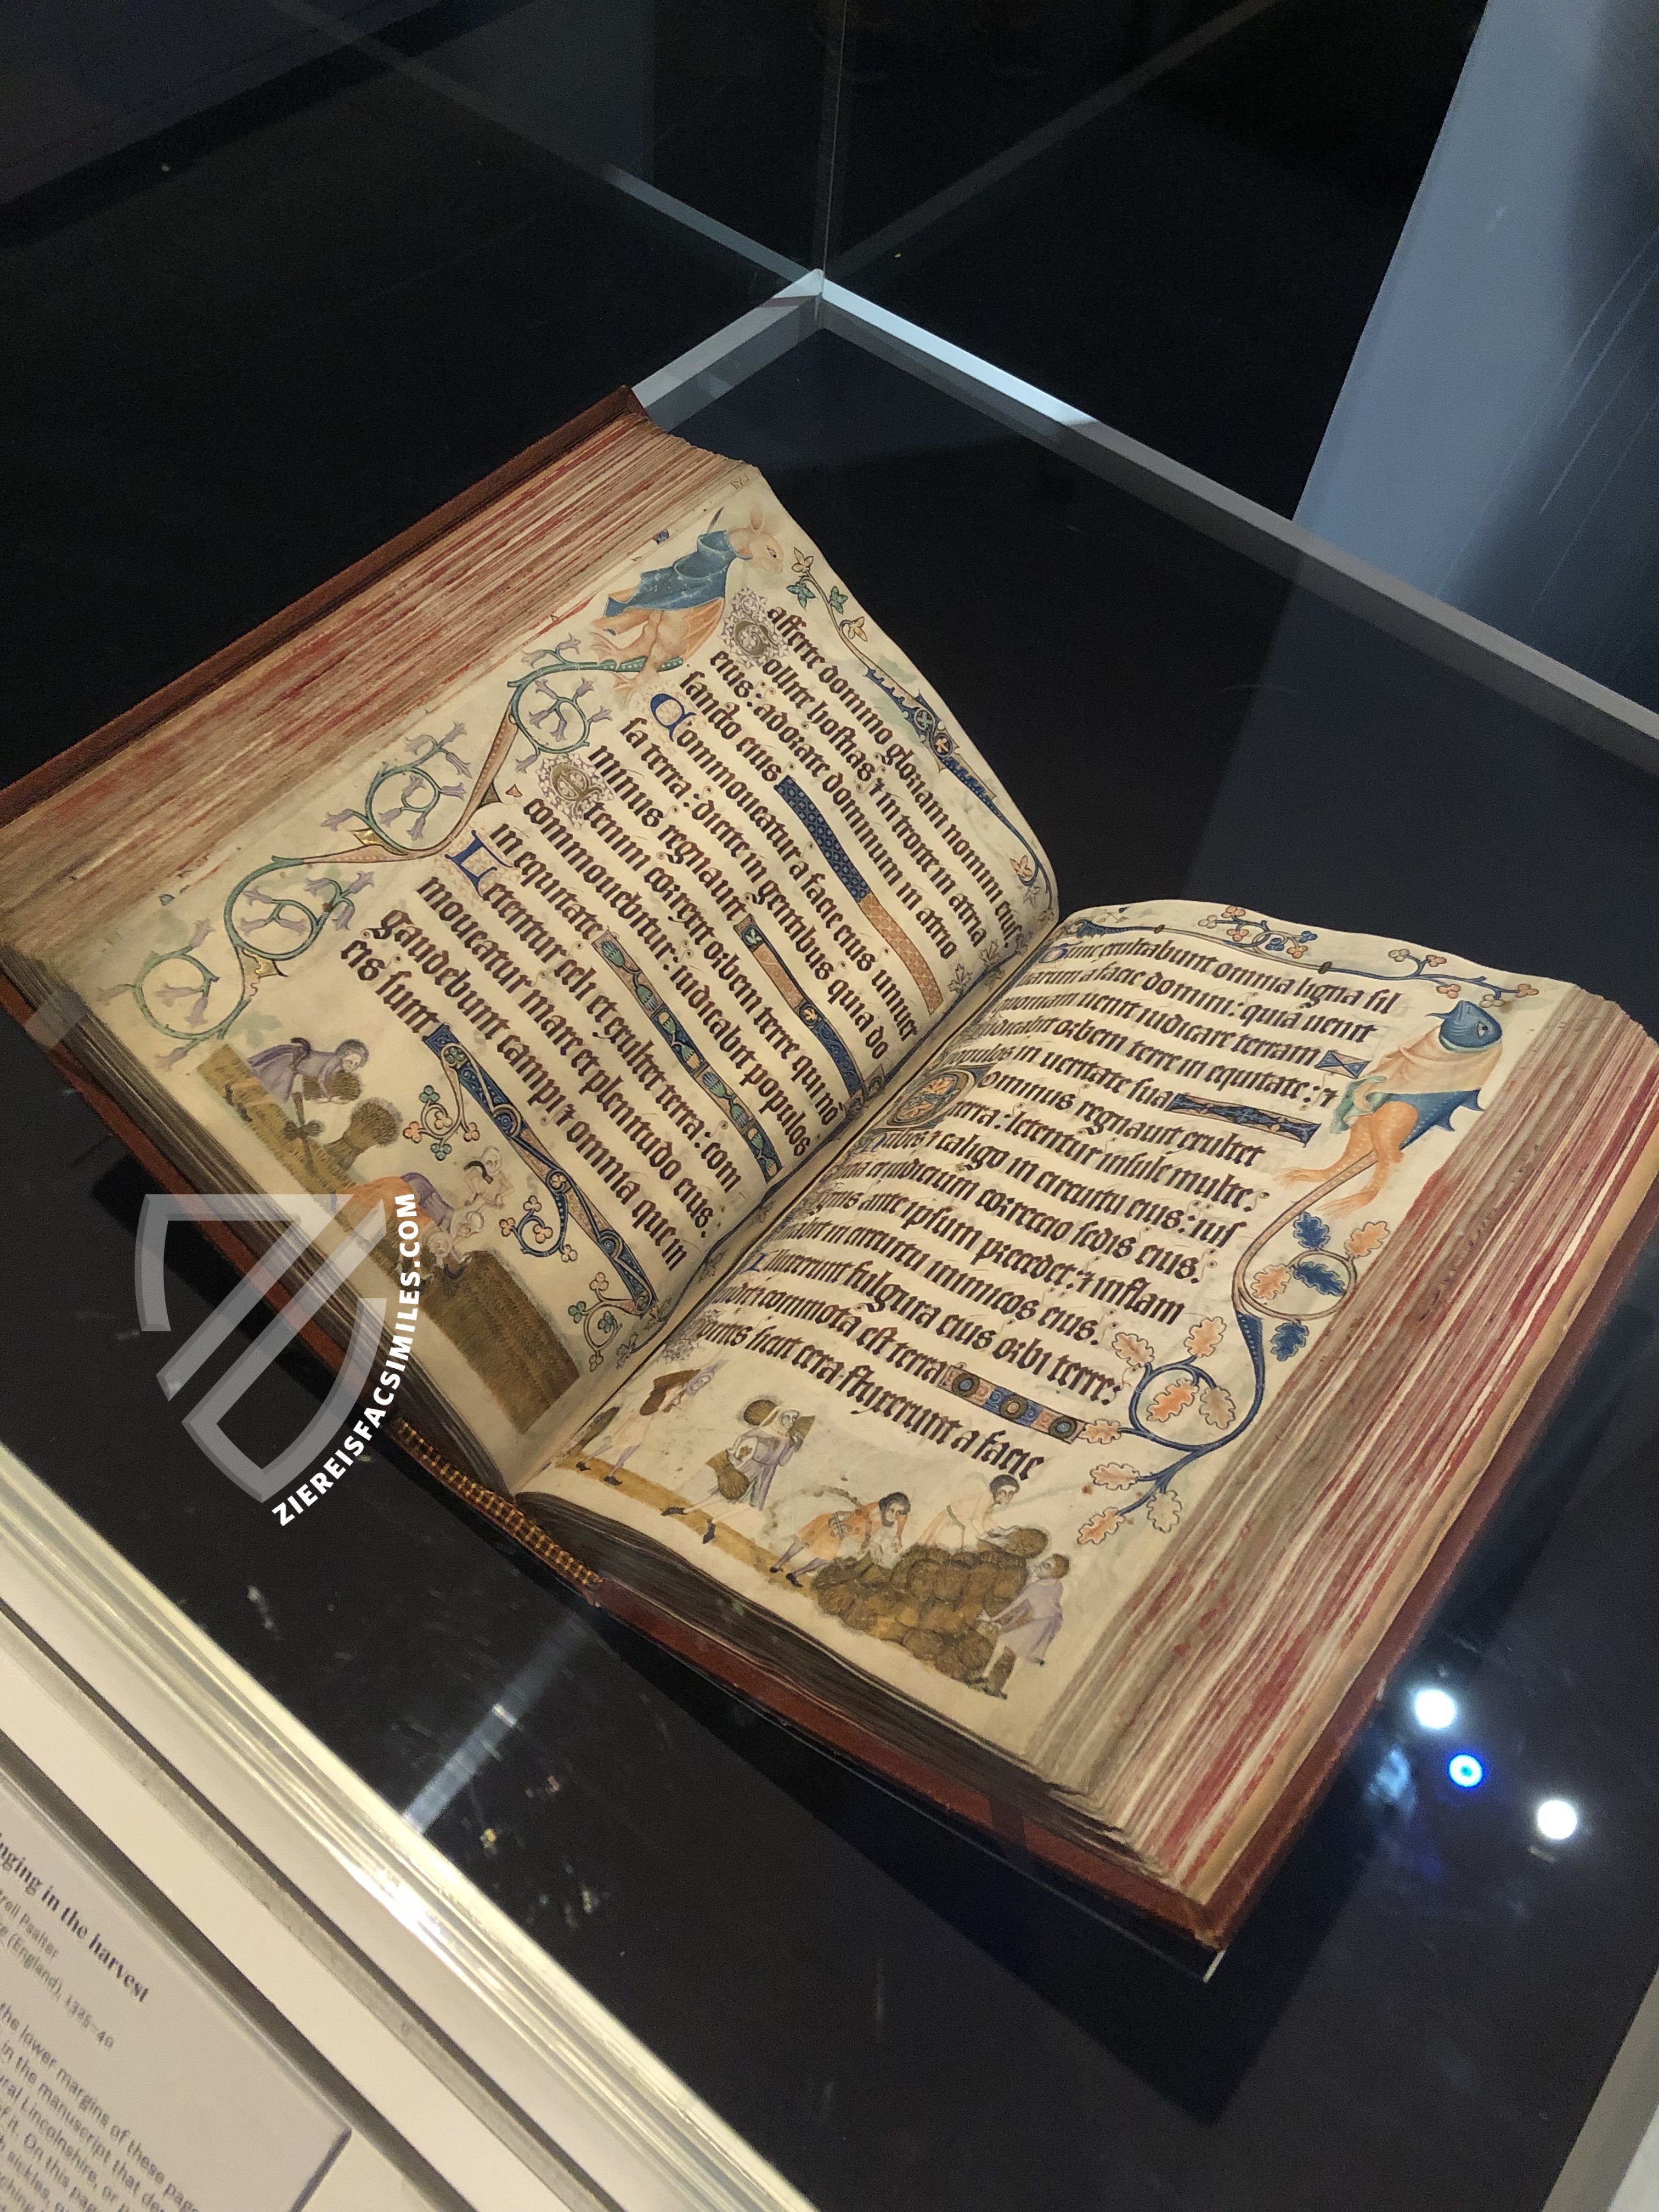 afferte domino gloriam nomini eius.
Tollite hostias ⁊ introite in atria
eius: adorate dominum in atrio
sancto eius
Commoueatur a facie eius uniuer
sa terra: dicite in gentibus quia do
minus regnauit
Etenim correxit orbem terre qui nō
commouebitur: iudicabit populos
in equitate
Letentur celi et exultet terra: com
moueatur mare et plenitudo eius.
gaudebunt campi ⁊ omnia que in
eis sunt
Tunc exultabunt omnia ligna sil
uarum a facie domini: quia uenit
quoniam uenit iudicare terram
Iudicabit orbem terre in equitate: ⁊
populos in ueritate sua
Dominus regnauit exultet
terra: letentur insule multe:
Nubes ⁊ caligo in circuitu eius: ius
ticia et iudicium correctio sedis eius.
Ignis ante ipsum precedet: ⁊ inflam
mabit in circuitu inimicos eius.
Illuxerunt fulgura eius orbi terre:
uidit ⁊ commota est terra
Montes sicut cera fluxerunt a facie
ZIEREISFACSIMILES.COM
nging in the harvest
trell Psalter
re (England), 1325–40
the lower margins of these page
in the manuscript that de
ural Lincolnshire, or p
of it. On this pag
h sickles,
ching